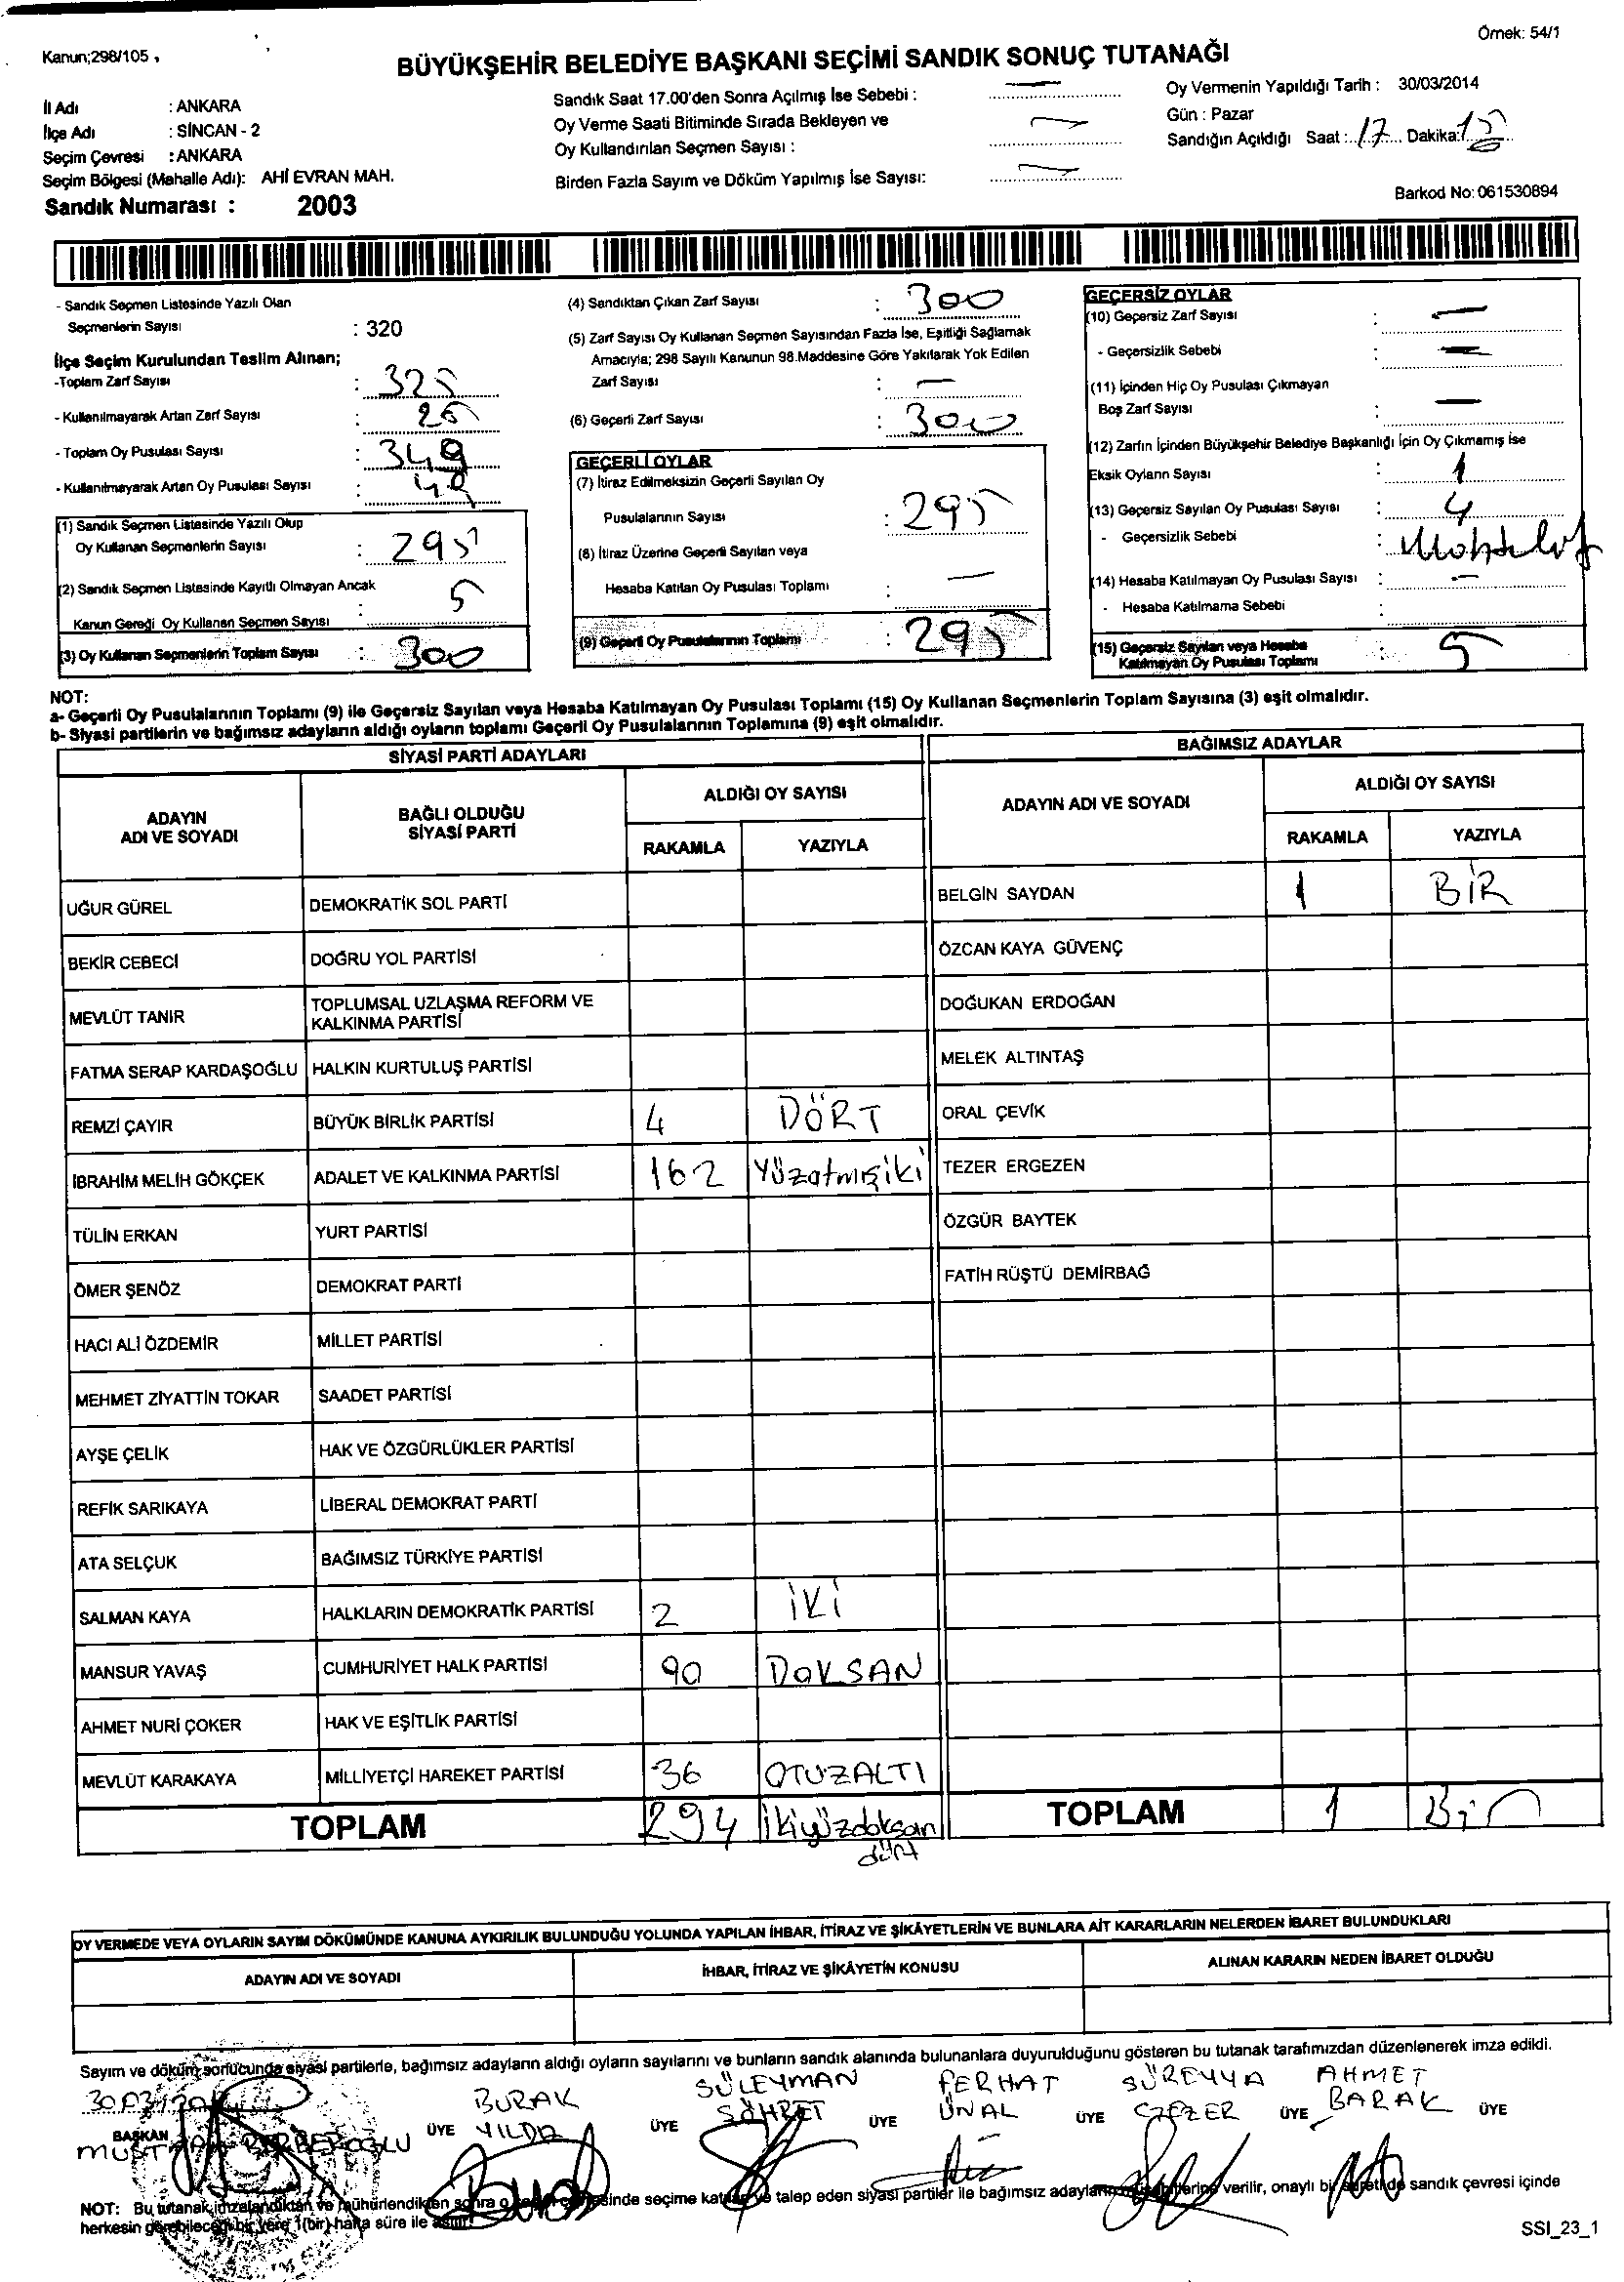 Örnek: 54/1
Kanun;298/105
BÜYÜKŞEHİR BELEDİYE BAŞKANI SEÇİMİ SANDIK SONUÇ TUTANAĞI
İl Adı : ANKARA
İlçe Adı : SİNCAN - 2
Seçim Çevresi : ANKARA
Seçim Bölgesi (Mahalle Adı): AHİ EVRAN MAH.
Sandık Numarası : 2003
Sandık Saat 17.00'den Sonra Açılmış İse Sebebi : —
Oy Verme Saati Bitiminde Sırada Bekleyen ve
Oy Kullandırılan Seçmen Sayısı : —
Birden Fazla Sayım ve Döküm Yapılmış İse Sayısı: —
Oy Vermenin Yapıldığı Tarih : 30/03/2014
Gün : Pazar
Sandığın Açıldığı Saat : 17 Dakika: 15
Barkod No: 061530894
- Sandık Seçmen Listesinde Yazılı Olan
Seçmenlerin Sayısı : 320
İlçe Seçim Kurulundan Teslim Alınan;
-Toplam Zarf Sayısı : 325
- Kullanılmayarak Artan Zarf Sayısı : 25
- Toplam Oy Pusulası Sayısı : 349
- Kullanılmayarak Artan Oy Pusulası Sayısı :
(1) Sandık Seçmen Listesinde Yazılı Olup
Oy Kullanan Seçmenlerin Sayısı : 295
(2) Sandık Seçmen Listesinde Kayıtlı Olmayan Ancak
Kanun Gereği Oy Kullanan Seçmen Sayısı : 5
(3) Oy Kullanan Seçmenlerin Toplam Sayısı : 300
(4) Sandıktan Çıkan Zarf Sayısı : 300
(5) Zarf Sayısı Oy Kullanan Seçmen Sayısından Fazla İse, Eşitliği Sağlamak
Amacıyla; 298 Sayılı Kanunun 98.Maddesine Göre Yakılarak Yok Edilen
Zarf Sayısı : —
(6) Geçerli Zarf Sayısı : 300
GEÇERLİ OYLAR
(7) İtiraz Edilmeksizin Geçerli Sayılan Oy
Pusulalarının Sayısı : 295
(8) İtiraz Üzerine Geçerli Sayılan veya
Hesaba Katılan Oy Pusulası Toplamı : —
(9) Geçerli Oy Pusulalarının Toplamı : 295
GEÇERSİZ OYLAR
(10) Geçersiz Zarf Sayısı : —
- Geçersizlik Sebebi : —
(11) İçinden Hiç Oy Pusulası Çıkmayan
Boş Zarf Sayısı : —
(12) Zarfın İçinden Büyükşehir Belediye Başkanlığı İçin Oy Çıkmamış İse
Eksik Oyların Sayısı : 1
(13) Geçersiz Sayılan Oy Pusulası Sayısı : 4
- Geçersizlik Sebebi :
(14) Hesaba Katılmayan Oy Pusulası Sayısı : —
- Hesaba Katılmama Sebebi :
(15) Geçersiz Sayılan veya Hesaba
Katılmayan Oy Pusulası Toplamı : 5
NOT:
a- Geçerli Oy Pusulalarının Toplamı (9) ile Geçersiz Sayılan veya Hesaba Katılmayan Oy Pusulası Toplamı (15) Oy Kullanan Seçmenlerin Toplam Sayısına (3) eşit olmalıdır.
b- Siyasi partilerin ve bağımsız adayların aldığı oyların toplamı Geçerli Oy Pusulalarının Toplamına (9) eşit olmalıdır.
SİYASİ PARTİ ADAYLARI
ADAYIN ADI VE SOYADI
BAĞLI OLDUĞU SİYASİ PARTİ
ALDIĞI OY SAYISI
RAKAMLA YAZIYLA
UĞUR GÜREL DEMOKRATİK SOL PARTİ
BEKİR CEBECİ DOĞRU YOL PARTİSİ
MEVLÜT TANIR TOPLUMSAL UZLAŞMA REFORM VE
KALKINMA PARTİSİ
FATMA SERAP KARDAŞOĞLU HALKIN KURTULUŞ PARTİSİ
REMZİ ÇAYIR BÜYÜK BİRLİK PARTİSİ 4 DÖRT
İBRAHİM MELİH GÖKÇEK ADALET VE KALKINMA PARTİSİ 162 Yüzatmışiki
TÜLİN ERKAN YURT PARTİSİ
ÖMER ŞENÖZ DEMOKRAT PARTİ
HACI ALİ ÖZDEMİR MİLLET PARTİSİ
MEHMET ZİYATTİN TOKAR SAADET PARTİSİ
AYŞE ÇELİK HAK VE ÖZGÜRLÜKLER PARTİSİ
REFİK SARIKAYA LİBERAL DEMOKRAT PARTİ
ATA SELÇUK BAĞIMSIZ TÜRKİYE PARTİSİ
SALMAN KAYA HALKLARIN DEMOKRATİK PARTİSİ 2 İKİ
MANSUR YAVAŞ CUMHURİYET HALK PARTİSİ 90 DOKSAN
AHMET NURİ ÇOKER HAK VE EŞİTLİK PARTİSİ
MEVLÜT KARAKAYA MİLLİYETÇİ HAREKET PARTİSİ 36 OTUZALTI
TOPLAM 294 ikiyüzdoksan
dört
BAĞIMSIZ ADAYLAR
ADAYIN ADI VE SOYADI
ALDIĞI OY SAYISI
RAKAMLA YAZIYLA
BELGİN SAYDAN 1 BİR
ÖZCAN KAYA GÜVENÇ
DOĞUKAN ERDOĞAN
MELEK ALTINTAŞ
ORAL ÇEVİK
TEZER ERGEZEN
ÖZGÜR BAYTEK
FATİH RÜŞTÜ DEMİRBAĞ
TOPLAM 1 Bir
OY VERMEDE VEYA OYLARIN SAYIM DÖKÜMÜNDE KANUNA AYKIRILIK BULUNDUĞU YOLUNDA YAPILAN İHBAR, İTİRAZ VE ŞİKÂYETLERİN VE BUNLARA AİT KARARLARIN NELERDEN İBARET BULUNDUKLARI
ADAYIN ADI VE SOYADI İHBAR, İTİRAZ VE ŞİKÂYETİN KONUSU ALINAN KARARIN NEDEN İBARET OLDUĞU
Sayım ve döküm sonucunda siyasi partilerle, bağımsız adayların aldığı oyların sayılarını ve bunların sandık alanında bulunanlara duyurulduğunu gösteren bu tutanak tarafımızdan düzenlenerek imza edildi.
BURAK SÜLEYMAN FERHAT SÜREYYA AHMET
BAŞKAN ÜYE ÜYE ŞÖHRET ÜYE ÜNAL ÜYE ÜYE BARAK ÜYE
MUSTAFA BERBEROĞLU
NOT: Bu tutanak imzalandıktan ve mühürlendikten sonra seçime katılan ve talep eden siyasi partiler ile bağımsız adayların verilir, onaylı bir sureti de sandık çevresi içinde
herkesin görebileceği bir yere 1(bir) hafta süre ile asılır.
SSI_23_1